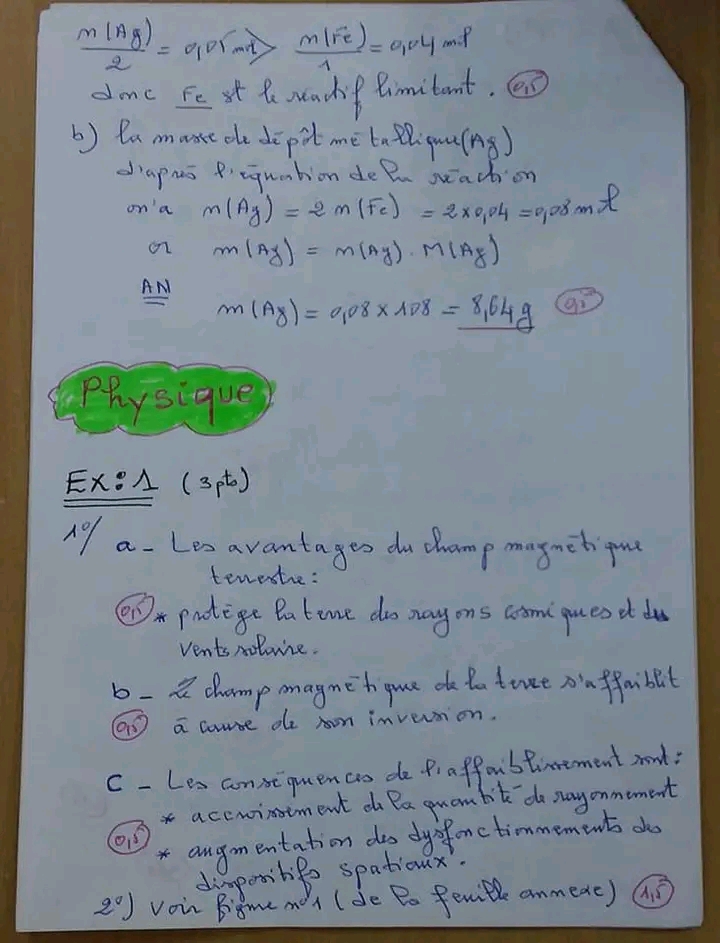 n(Ag)/2 = 0,05 mol > n(Fe)/1 = 0,04 mol
donc Fe est le réactif limitant. 0,5
b) la masse de dépôt métallique (Ag)
d'après l'équation de la réaction
on a n(Ag) = 2 n(Fe) = 2x0,04 = 0,08 mol
or m(Ag) = n(Ag). M(Ag)
AN
m(Ag) = 0,08 x 108 = 8,64 g
Physique
Ex: 1 (3 pts)
1°/ a - Les avantages du champ magnétique
terrestre:
0,5 * protège la terre des rayons cosmiques et du
vents solaire.
b - Le champ magnétique de la terre s'affaiblit
0,5 à cause de son inversion.
c - Les conséquences de l'affaiblissement sont:
* accroissement de la quantité de rayonnement
0,5 * augmentation des dysfonctionnements des
dispositifs spatiaux.
2°) Voir figure n°1 (de la feuille annexe) 1,5